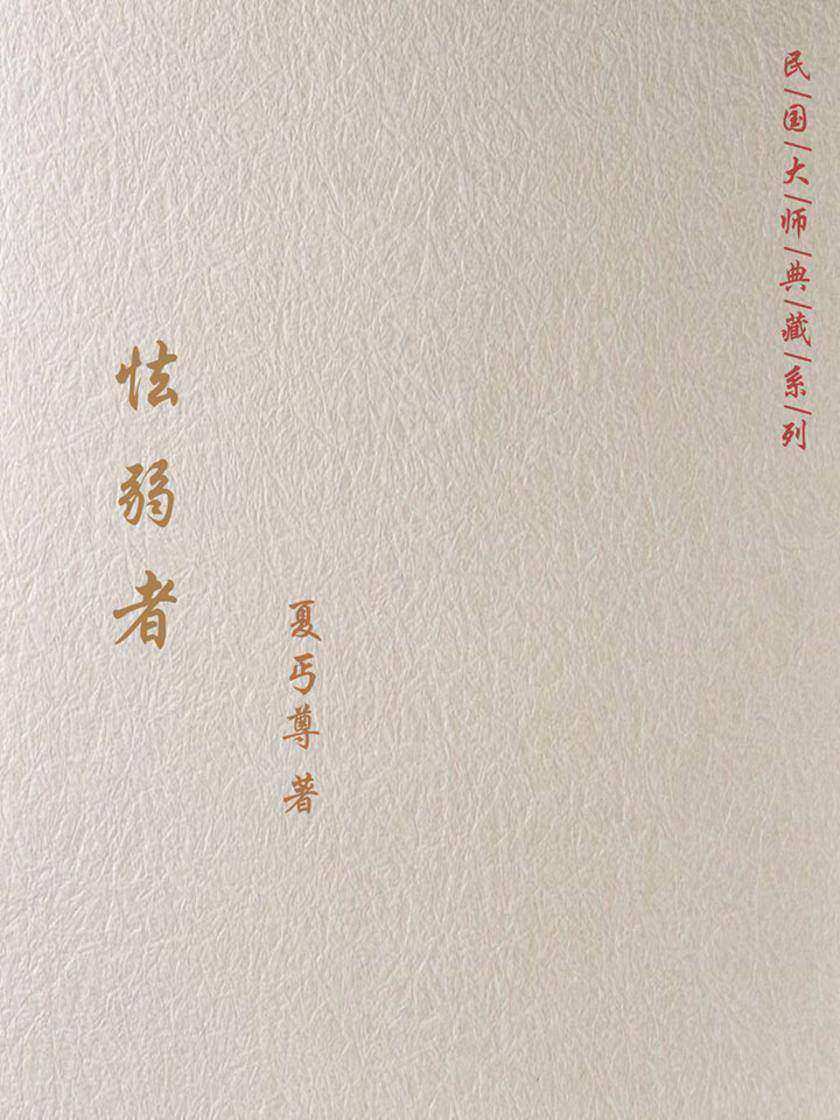 民/国/大/师/典/藏/系/列
怯弱者
夏丏尊 著